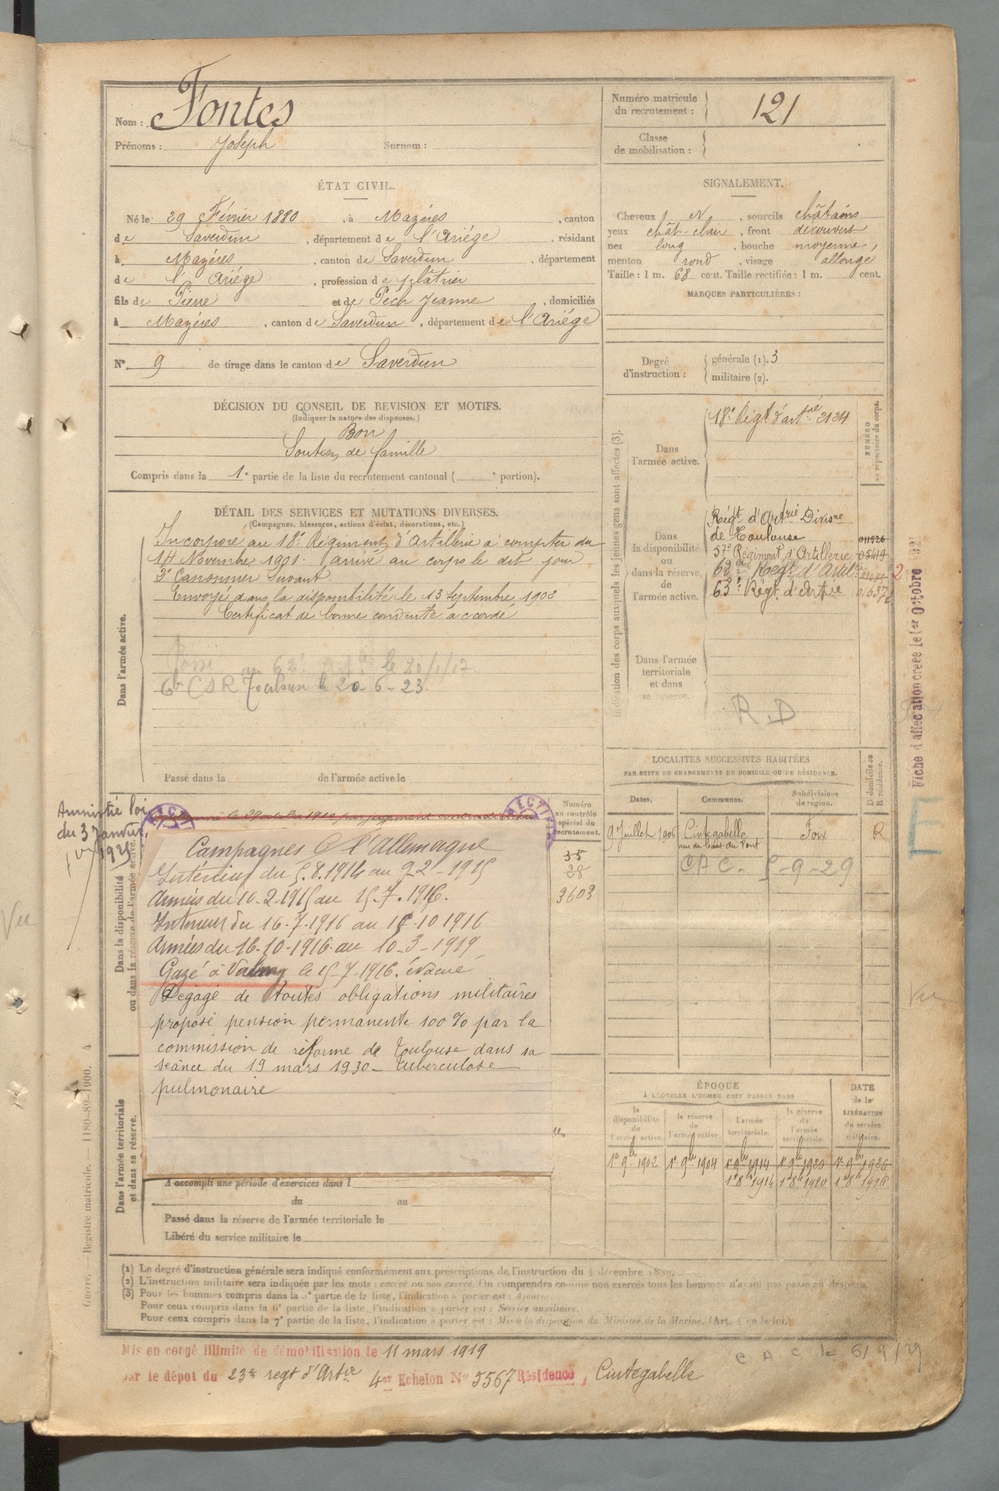 Nom : Fontes
Prénoms : Joseph Surnom :
Numéro matricule
du recrutement : 121
Classe
de mobilisation :
ÉTAT CIVIL.
Né le 29 Février 1880, à Mazères, canton
de Saverdun, département de l'Ariége, résidant
à Mazères, canton de Saverdun, département
de l'Ariége, profession de plâtrier
fils de Pierre et de Pech Jeanne, domiciliés
à Mazères, canton de Saverdun, département de l'Ariége
N° 9 de tirage dans le canton de Saverdun
SIGNALEMENT.
Cheveux N, sourcils châtains
yeux chât-clair, front découvert
nez long, bouche moyenne,
menton rond, visage allongé
Taille : 1 m. 68 cent. Taille rectifiée : 1 m. cent.
MARQUES PARTICULIÈRES :
Degré
d'instruction :
générale (1). 3
militaire (2).
DÉCISION DU CONSEIL DE REVISION ET MOTIFS.
(Indiquer la nature des dispenses.)
Bon
Soutien de famille
Compris dans la 1e partie de la liste du recrutement cantonal ( e portion).
DÉTAIL DES SERVICES ET MUTATIONS DIVERSES.
(Campagnes, blessures, actions d'éclat, décorations, etc.)
Dans l'armée active.
Incorporé au 18e Régiment d'Artillerie à compter du
14 Novembre 1901. arrivé au corps le dit jour
2e Canonnier Servant
Envoyé dans la disponibilité le 13 Septembre 1902
Certificat de bonne conduite accordé
6e CSR Toulouse le 20-6-23
Passé dans la de l'armée active le
Indication des corps auxquels les jeunes gens sont affectés (3).
NUMÉRO
au répertoire du corps.
Dans
l'armée active.
18e Régt d'artrie 2124
Dans
la disponibilité
ou
dans la réserve de
l'armée active.
Régt d'Artrie Divisre
de Toulouse 011526
57e Régiment d'Artillerie 05414
62e Régt d'Artie
63e Régt d'Artie
Dans l'armée
territoriale
et dans
sa réserve.
R.D
Fiche d'affectation créée le 1er Octobre
LOCALITÉS SUCCESSIVES HABITÉES
PAR SUITE DE CHANGEMENTS DE DOMICILE OU DE RÉSIDENCE.
Dates. Communes. Subdivisions de région. D. domicile ou R. résidence.
9 Juillet 1906 Cintegabelle Foix R
rue du bout du Pont
CAC. 5-9-29
Amnistie loi
du 3 Janvier
1925
Vu
Dans la disponibilité
ou dans la réserve de l'armée active.
Numéro
au contrôle
spécial du
recrutement.
35
28
3603
Campagnes C l'Allemagne
Intérieur du 5.8.1914 au 9-2-1915
Armées du 10-2-1915 au 15-7-1916.
Intérieur du 16-7-1916 au 15-10 1916
Armées du 16-10-1916 au 10-3-1919
Gazé à Valmy le 15 7-1916. évacué
Dégagé de toutes obligations militaires
proposé pension permanente 100% par la
commission de réforme de Toulouse dans sa
séance du 19 mars 1930 - tuberculose
pulmonaire
Dans l'armée territoriale
et dans sa réserve.
A accompli une période d'exercices dans l
du au
Passé dans la réserve de l'armée territoriale le
Libéré du service militaire le
ÉPOQUE
À LAQUELLE L'HOMME DOIT PASSER DANS
la disponibilité de l'armée active. la réserve de l'armée active l'armée territoriale. la réserve de l'armée territoriale.
DATE de la LIBÉRATION du service militaire.
1er 9bre 1902 1er 9bre 1904 1er 9bre 1914 1er 9bre 1920 1er 9bre 1926
1er 8bre 1914 1er 8bre 1920 1er 8bre 1926
(1) Le degré d'instruction générale sera indiqué conformément aux prescriptions de l'instruction du 4 décembre
(2) L'instruction militaire sera indiquée par les mots : exercé ou non exercé. On comprendra comme non exercés tous les hommes n'ayant pas passé en
(3) Pour les hommes compris dans la partie de la liste, l'indication à porter est :
Pour ceux compris dans la 6e partie de la liste, l'indication à porter est : Service auxiliaire.
Pour ceux compris dans la 7e partie de la liste, l'indication à porter est : Mis à la disposition du Ministre de la Marine.
Guerre. — Registre matricule. — 1180-89-1900. 4
Mis en congé illimité de démobilisation le 11 mars 1919
par le dépôt du 23e regt d'Artie 4er Echelon N° 5567 Résidence, Cintegabelle
C.A.C. le 6/9/29